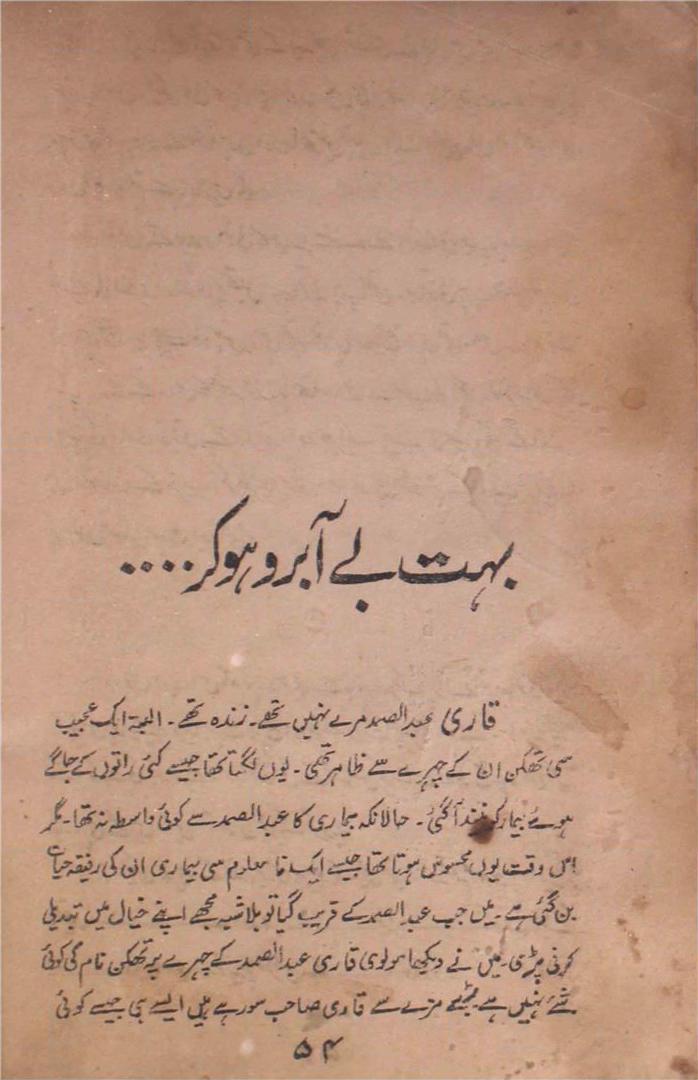 بہت بے آبرو ہو کر ....
قاری عبدالصمد مرے نہیں تھے۔ زندہ تھے۔ البتہ ایک عجیب
سی تھکن ان کے چہرے سے ظاہر تھی۔ یوں لگتا تھا جیسے کئی راتوں کے جاگے
ہوئے بیمار کو نیند آ گئی۔ حالانکہ بیماری کا عبدالصمد سے کوئی واسطہ نہ تھا۔ مگر
اس وقت یوں محسوس ہوتا تھا جیسے ایک نا معلوم سی بیماری ان کی رفیقہ حیات
بن گئی ہے۔ میں جب عبدالصمد کے قریب گیا تو بلاشبہ مجھے اپنے خیال میں تبدیلی
کرنی پڑی۔ میں نے دیکھا مولوی قاری عبدالصمد کے چہرے پر تھکن نام کی کوئی
شے نہیں ہے۔ مزے سے قاری صاحب سو رہے ہیں ایسے ہی جیسے کوئی
۵۴